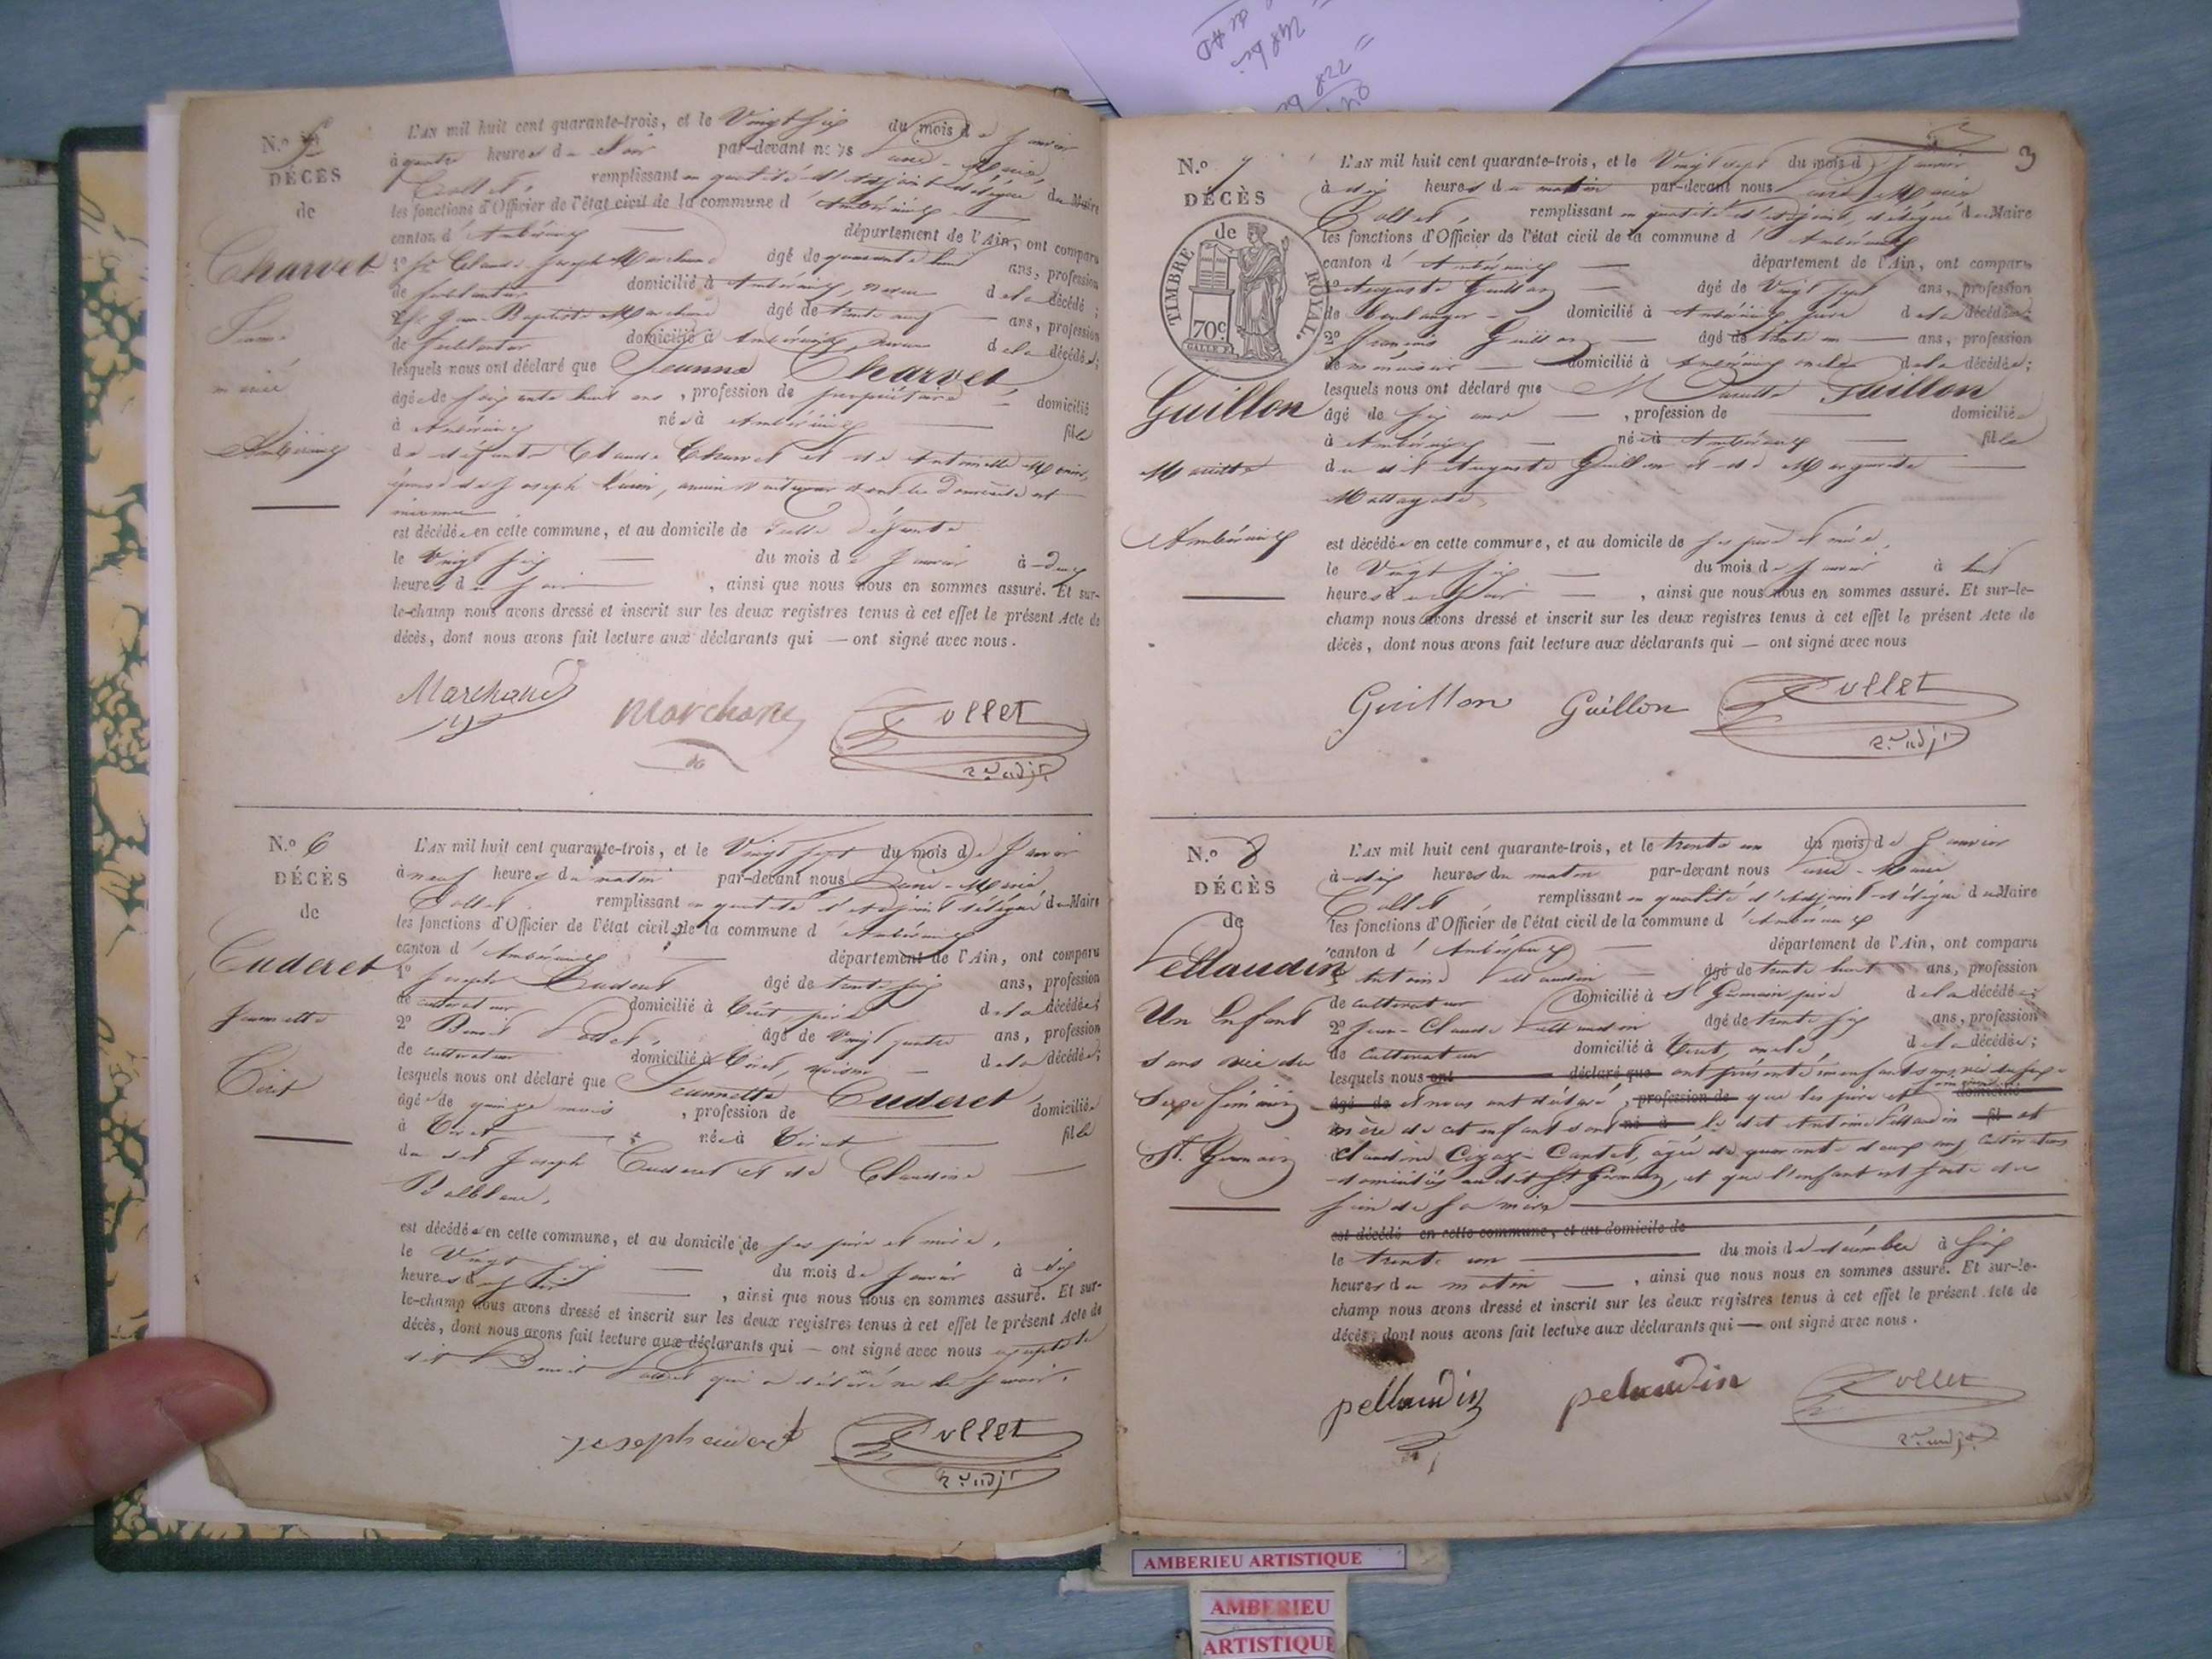 N.º 5
DÉCÈS
de
Charvet
Jeanne
mariée
Ambérieux
L'AN mil huit cent quarante-trois, et le Vingt six du mois de Janvier
à quatre heures du Soir par-devant nous Marie
Collet, remplissant en qualité d'Adjoint délégué du Maire
les fonctions d'Officier de l'état civil de la commune d'Ambérieux
canton d'Ambérieux département de l'Ain, ont comparu
1º Claude Joseph Marchand âgé de quarante huit ans, profession
de ferblantier domicilié à Ambérieux, neveu de la décédée;
2º Jean-Baptiste Marchand âgé de trente neuf ans, profession
de ferblantier domicilié à Ambérieux, neveu de la décédée;
lesquels nous ont déclaré que Jeanne Charvet,
âgée de soixante huit ans, profession de propriétaire domicilié
à Ambérieux née à Ambérieux fille
de défunts Claude Charvet et de Antoinette
épouse de Joseph dont le Domicile est
inconnu
est décédée en cette commune, et au domicile de ladite défunte
le Vingt six du mois de Janvier à deux
heures du soir, ainsi que nous nous en sommes assuré. Et sur-
le-champ nous avons dressé et inscrit sur les deux registres tenus à cet effet le présent Acte de
décès, dont nous avons fait lecture aux déclarants qui — ont signé avec nous.
Marchand
Marchand
Collet
2e adjt
N.º 6
DÉCÈS
de
Cuderet
Jeannette
Tiret
L'AN mil huit cent quarante-trois, et le Vingt sept du mois de Janvier
à neuf heures du matin par-devant nous Marie
Collet remplissant en qualité d'Adjoint délégué du Maire
les fonctions d'Officier de l'état civil de la commune d'Ambérieux
canton d'Ambérieux département de l'Ain, ont comparu
1º Joseph Cuderet âgé de trente six ans, profession
de cultivateur domicilié à Tiret, père de la décédée;
2º Benoit âgé de Vingt quatre ans, profession
de cultivateur domicilié à Tiret, voisin de la décédée;
lesquels nous ont déclaré que Jeannette Cuderet
âgée de quinze mois, profession de domiciliée
à Tiret née à Tiret fille
du dit Joseph Cuderet et de Claudine
est décédée en cette commune, et au domicile de ses père et mère,
le Vingt six du mois de Janvier à dix
heures du soir, ainsi que nous nous en sommes assuré. Et sur-
le-champ nous avons dressé et inscrit sur les deux registres tenus à cet effet le présent Acte de
décès, dont nous avons fait lecture aux déclarants qui — ont signé avec nous excepté le
dit Benoit qui a déclaré ne le savoir.
Collet
2e adjt
3
N.º 7
DÉCÈS
de
TIMBRE ROYAL.
70c
Guillon
Mariette
Ambérieux
L'AN mil huit cent quarante-trois, et le Vingt sept du mois de Janvier
à dix heures du matin par-devant nous Marie
Collet, remplissant en qualité d'Adjoint délégué du Maire
les fonctions d'Officier de l'état civil de la commune d'Ambérieux
canton d'Ambérieux département de l'Ain, ont comparu
1º Auguste Guillon âgé de Vingt sept ans, profession
de boulanger domicilié à Ambérieux, père de la décédée;
2º François Guillon âgé de trente un ans, profession
de menuisier domicilié à Ambérieux oncle de la décédée;
lesquels nous ont déclaré que Mariette Guillon
âgé de six ans, profession de domiciliée
à Ambérieux née à Ambérieux fille
du dit Auguste Guillon et de Marguerite
est décédée en cette commune, et au domicile de ses père et mère,
le Vingt six du mois de Janvier à huit
heures du soir, ainsi que nous nous en sommes assuré. Et sur-le-
champ nous avons dressé et inscrit sur les deux registres tenus à cet effet le présent Acte de
décès, dont nous avons fait lecture aux déclarants qui — ont signé avec nous
Guillon Guillon Collet
2e adjt
N.º 8
DÉCÈS
de
Pellaudin
Un Enfant
sans vie du
Sexe féminin
St. Germain
L'AN mil huit cent quarante-trois, et le trente un du mois de Janvier
à dix heures du matin par-devant nous Marie
Collet remplissant en qualité d'Adjoint délégué du Maire
les fonctions d'Officier de l'état civil de la commune d'Ambérieux
canton d'Ambérieux département de l'Ain, ont comparu
1º Antoine Pellaudin âgé de trente huit ans, profession
de cultivateur domicilié à St Germain père de la décédée;
2º Jean-Claude Pellaudin âgé de trente six ans, profession
de cultivateur domicilié à Tiret, oncle de la décédée;
lesquels nous ont déclaré que ont présenté un enfant sans vie du sexe
féminin
âgé de et nous ont déclaré, profession de que les père et domicilié
mère de cet enfant sont né à le dit Antoine Pellaudin fil et
Claudine âgée de quarante deux ans cultivateurs
domiciliés audit St Germain, et que l'enfant est sorti du
sein de sa mère
est décédé en cette commune, et au domicile de
le trente un du mois de décembre à six
heures du matin, ainsi que nous nous en sommes assuré. Et sur-le-
champ nous avons dressé et inscrit sur les deux registres tenus à cet effet le présent Acte de
décès, dont nous avons fait lecture aux déclarants qui — ont signé avec nous.
pellaudin pelaudin Collet
2e adjt
AMBERIEU ARTISTIQUE
AMBERIEU
ARTISTIQUE